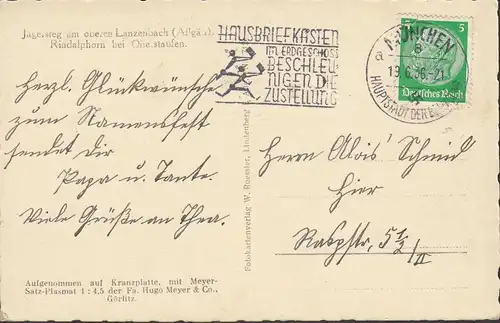 Jägersteg am oberen Lanzenbach (Allgäu)
Rindalphorn bei Oberstaufen.
HAUSBRIEFKASTEN
IM ERDGESCHOSS
BESCHLEU
NIGEN DIE
ZUSTELLUNG
MÜNCHEN
19.6.36-21
HAUPTSTADT DER
5
Deutsches Reich
Herzl. Glückwünsche
zum Namensfest
sendet dir
Papa u. Tante.
Viele Grüße an Thea.
Aufgenommen auf Kranzplatte, mit Meyer-
Satz-Plasmat 1 : 4,5 der Fa. Hugo Meyer & Co.,
Görlitz.
Fotokartenverlag W. Ruessler, Lindenberg
Herrn Alois Schmid
Hier
Raspstr. 5 1/2/II